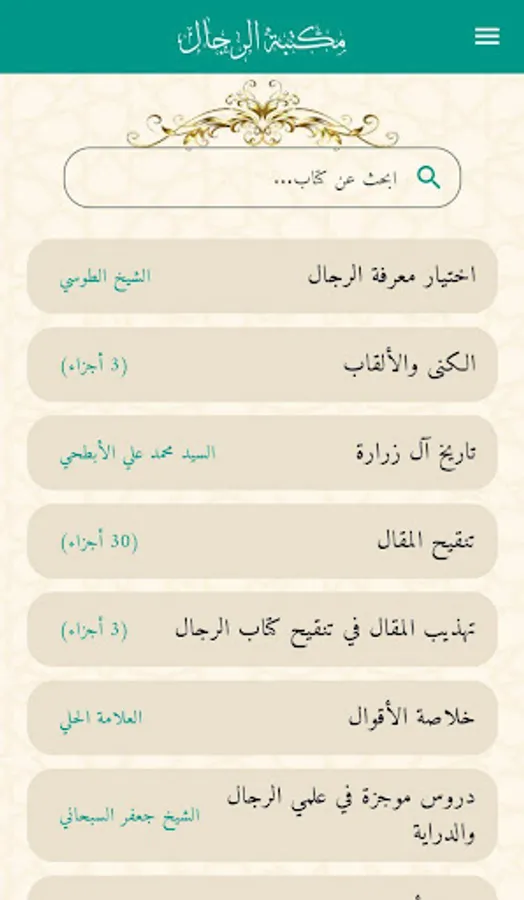 مكتبة الرجال
ابحث عن كتاب...
اختيار معرفة الرجال الشيخ الطوسي
الكنى والألقاب (3 أجزاء)
تاريخ آل زرارة السيد محمد علي الأبطحي
تنقيح المقال (30 أجزاء)
تهذيب المقال في تنقيح كتاب الرجال (3 أجزاء)
خلاصة الأقوال العلامة الحلي
دروس موجزة في علمي الرجال
والدراية الشيخ جعفر السبحاني